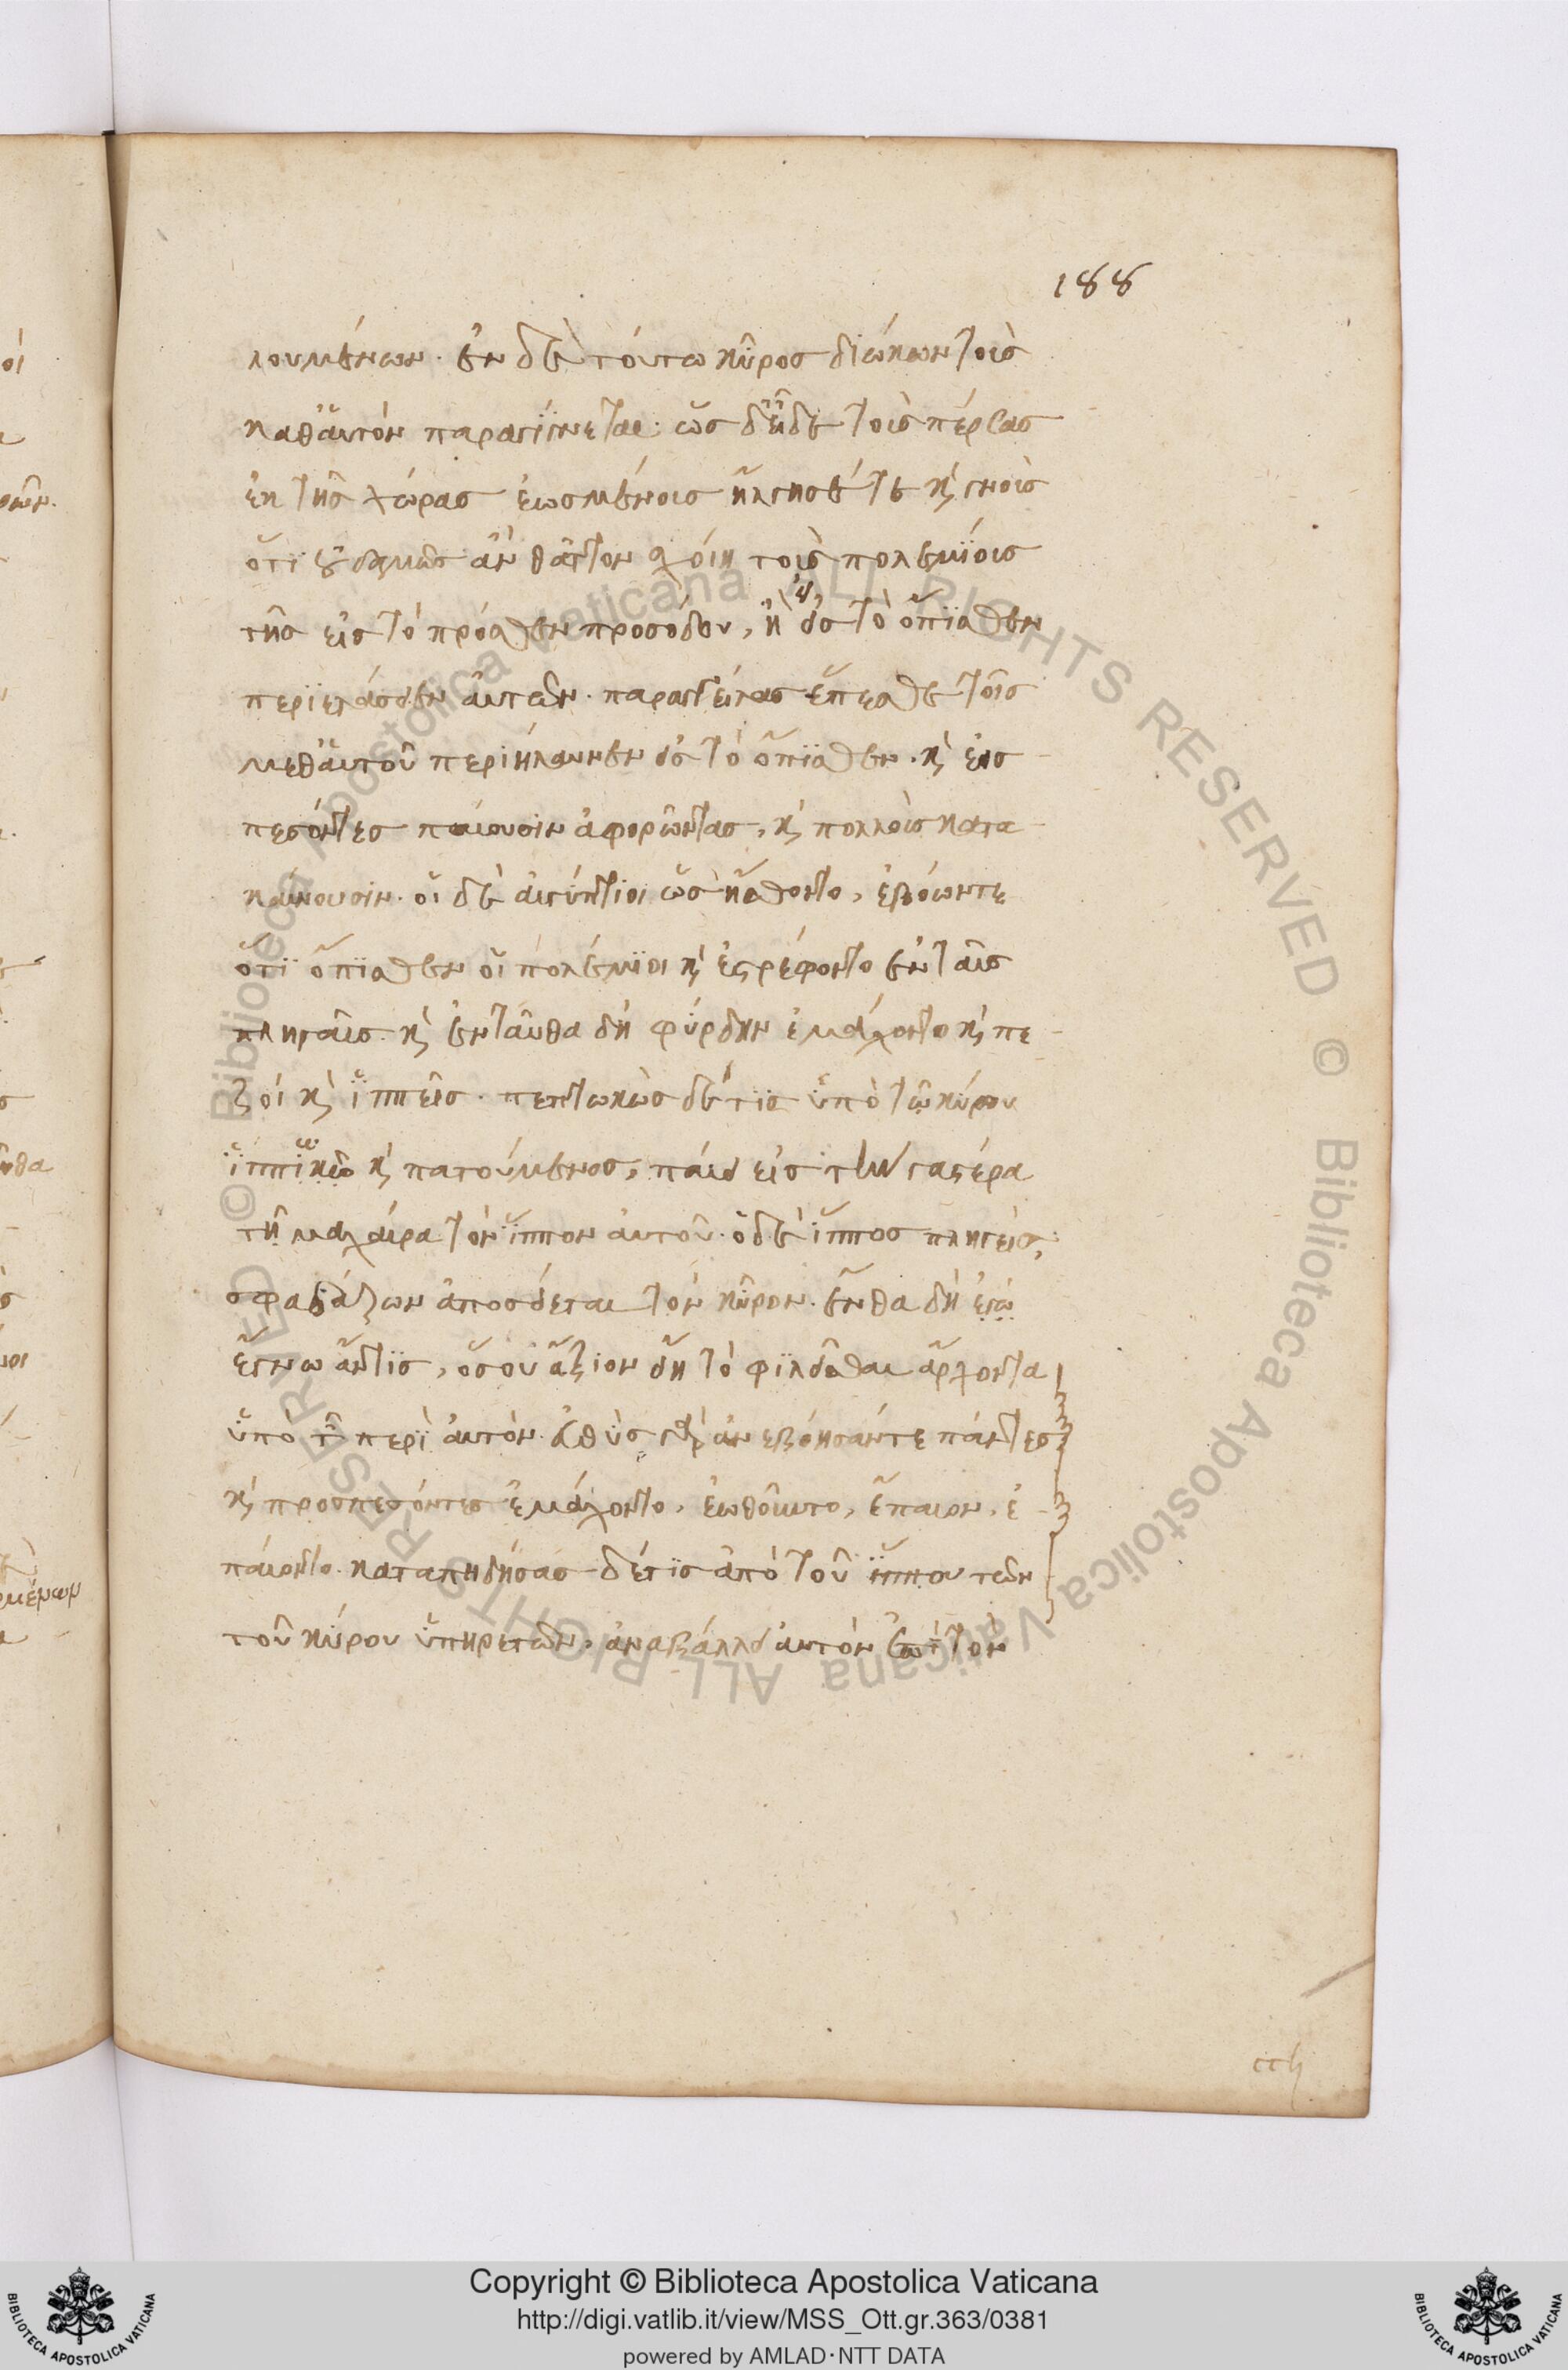 188
λουμένων. ἐν δὲ τούτω κῦρος διώκων τοὺς
καθ᾽ αὑτὸν παραγίγνεται. ὡς δ᾽ εἶδε τοὺς πέρσας
ἐκ τῆς χώρας ἐωσμένους ἤλγησέ τε καὶ γνοὺς
ὅτι οὐδαμῶς ἂν θᾶττον σχοίη τοὺς πολεμίους
τῆς εἰς τὸ πρόσθεν προσόδου, ἢ εἰς τὸ ὄπισθεν
περιελάσειεν αὐτῶν. παραγγείλας ἕπεσθε τοῖς
μεθ᾽ αὑτοῦ περιήλαυνεν εἰς τὸ ὄπισθεν. καὶ εἰς
πεσόντες παίουσιν ἀφορῶντας, καὶ πολλοὺς κατα
καίνουσιν. οἱ δὲ αἰγύπτιοι ὡς ἤσθοντο, ἐβόων τε
ὅτι ὄπισθεν οἱ πολέμιοι καὶ ἐστρέφοντο ἐν ταῖς
πληγαῖς. καὶ ἐνταῦθα δὴ φύρδην ἐμάχοντο καὶ πε
ζοὶ καὶ ἱππεῖς. πεπτωκὼς δέ τις ὑπὸ τῶ κύρου
ἵππω καὶ πατούμενος, παίει εἰς τὴν γαστέρα
τῆ μαχαίρα τὸν ἵππον αὐτοῦ. ὁ δὲ ἵππος πληγεὶς,
σφαδάζων ἀποσείεται τὸν κῦρον. ἔνθα δὴ ἐγὼ
ἔγνω ἄν τις, ὅσου ἄξιον εἴη τὸ φιλεῖσθαι ἄρχοντα
ὑπὸ τῶν περὶ αὐτὸν. εὐθὺς γὰρ ἀνεβόησάν τε πάντες
καὶ προσπεσόντες ἐμάχοντο, ἐωθοῦντο, ἔπαιον, ἐ
παίοντο. καταπηδήσας δέ τις ἀπὸ τοῦ ἵππου τῶν
τοῦ κύρου ὑπηρετῶν, ἀναβάλλει αὐτὸν ἐπὶ τὸν
Copyright © Biblioteca Apostolica Vaticana
http://digi.vatlib.it/view/MSS_Ott.gr.363/0381
powered by AMLAD·NTT DATA